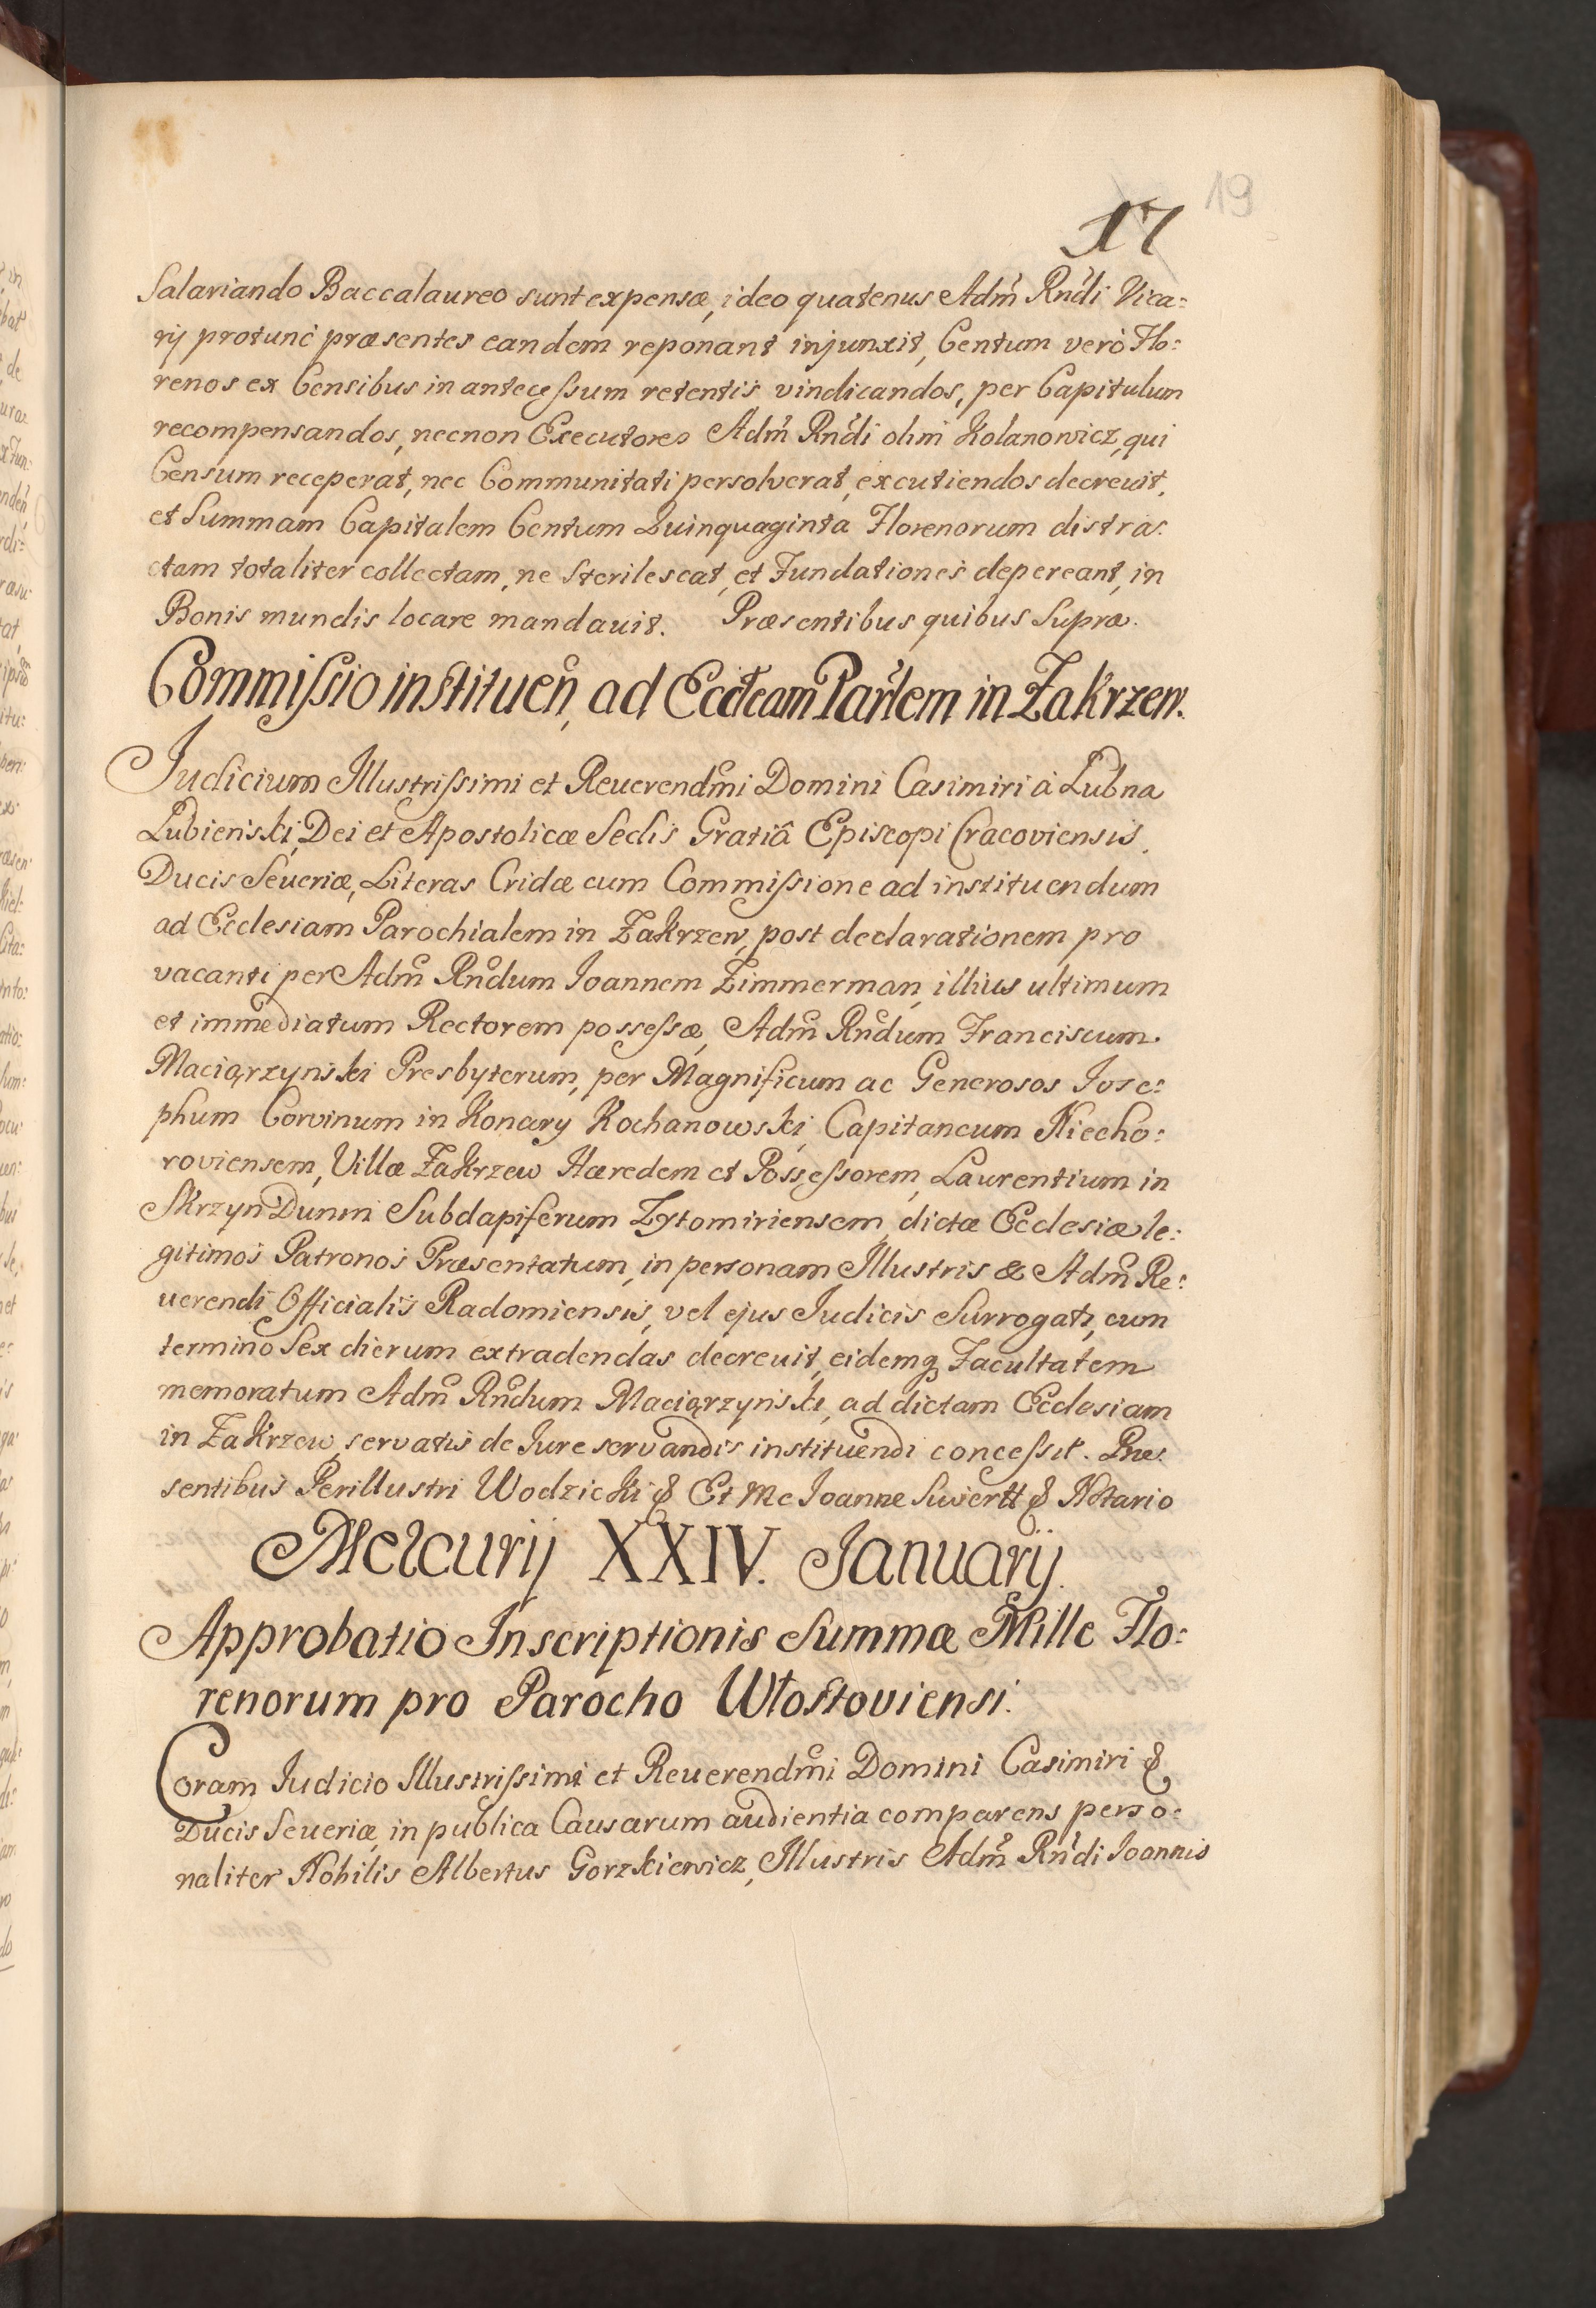 17 19
Salariando Baccalaureo sunt expensæ, ideo quatenus Adm̃ Rñdi Vica:
rij protunc præsentes eandem reponant injunxit, Centum verò Flo:
renos ex Censibus in antecessum retentis vindicandos, per Capitulum
recompensandos, necnon Executores Adm̃ Rñdi olim Kolanowicz, qui
Censum receperat, nec Communitati persolverat, excutiendos decreuit,
et Summam Capitalem Centum Quinquaginta Florenorum distra:
ctam totaliter collectam, ne sterilescat, et Fundationes depereant, in
Bonis mundis locare mandauit. Præsentibus quibus Supra.
Commissio instituen̄, ad Eccl̃eam Par̃lem in Zakrzew.
Judicium Illustrissimi et Reuerendm̃i Domini Casimiri à Lubna
Lubieński, Dei et Apostolicæ Sedis Gratiâ Episcopi Cracoviensis,
Ducis Severiæ, Literas Cridæ cum Commissione ad instituendum
ad Ecclesiam Parochialem in Zakrzew, post declarationem pro
vacanti per Adm̃ Rñdum Joannem Zimmerman, illius ultimum
et immediatum Rectorem possessæ, Adm̃ Rñdum Franciscum
Maciąrzyński Presbyterum, per Magnificum ac Generosos Jose:
phum Corvinum in Konary Kochanowski, Capitaneum Niecho:
roviensem, Villæ Zakrzew Hæredem et Possessorem, Laurentium in
Skrzyn Dunin Subdapiferum Zytomiriensem, dictæ Ecclesiæ le:
gitimos Patronos Præsentatum, in personam Illustris & Adm̃ Re:
uerendi Officialis Radomiensis, vel ejus Judicis Surrogati, cum
termino Sex dierum extradendas decreuit, eidemq; Facultatem
memoratum Adm̃ Rñdum Maciąrzyński, ad dictam Ecclesiam
in Zakrzew servatis de Jure servandis instituendi concessit. Præ:
sentibus Perillustri Wodzicki & Et Me Joanne Suwertt & Notario
Mercurij XXIV. Januarij.
Approbatio Inscriptionis Summæ Mille Flo:
renorum pro Parocho Włostoviensi.
Coram Judicio Illustrissimi et Reuerendm̃i Domini Casimiri &
Ducis Seueriæ, in publica Causarum audientia comparens perso:
naliter Nobilis Albertus Gorzkiewicz, Illustris Adm̃ Rñdi Joannis